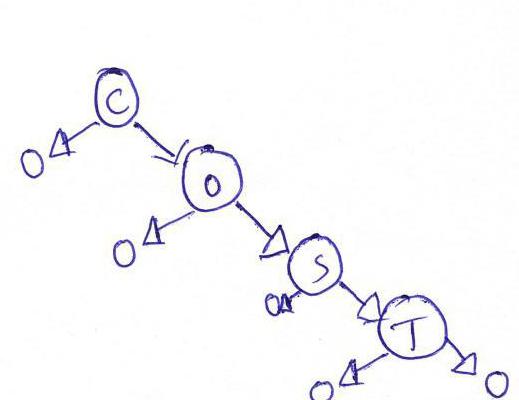 C
0
O
0
S
0
T
0
0